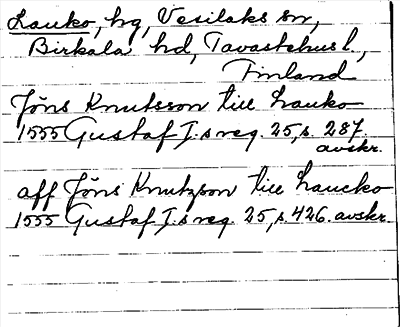 Lauko, hg, Vesilaks sn,
Birkala hd, Tavastehus l.,
Finland
Jöns Knutsson till Lauko
1555 Gustaf I.s reg. 25, s. 287.
avskr.
aff Jöns Knutzson till Laucko
1555 Gustaf I.s reg. 25, s. 426. avskr.